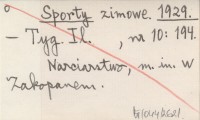 Sporty zimowe. 1929.
— Tyg. Il., nr 10: 194.
Narciarstwo, m. in. w
Zakopanem.